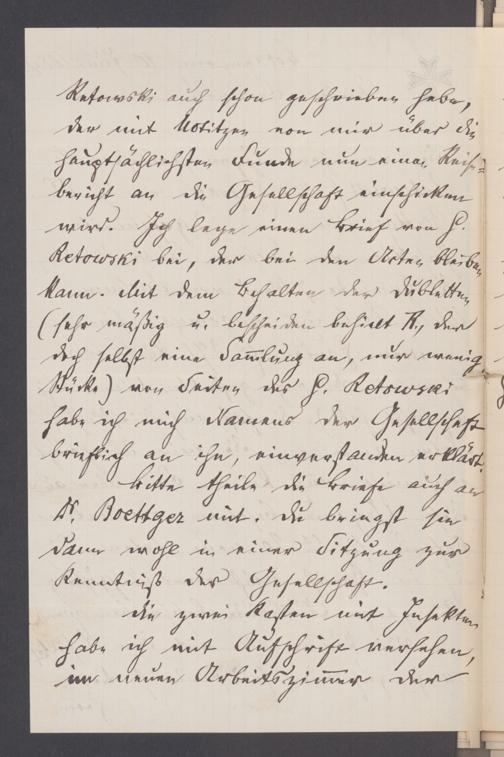 Retowski auch schon geschrieben habe,
der mit Notitzen von mir über die
hauptsächlichsten Funde nun einen Reise=
bericht an die Gesellschaft einschicken
wird. Ich lege einen Brief von H.
Retowski bei, der bei den Akten bleiben
kann. Mit dem Behalten der Dubletten
(sehr mäßig u. bescheiden behielt R., der
doch selbst eine Sam̅lung an, nur wenig
Stücke) von Seiten des H. Retowski
habe ich mich Namens der Gesellschaft
brieflich an ihn, einverstanden erklärt.
Bitte theile die Briefe auch an
Dr. Boettger mit. Du bringst sie
dann wohl in einer Sitzung zur
Kenntniß der Gesellschaft.
Die zwei Kasten mit Insekten
habe ich mit Aufschrift versehen,
im neuen Arbeitszim̅er der